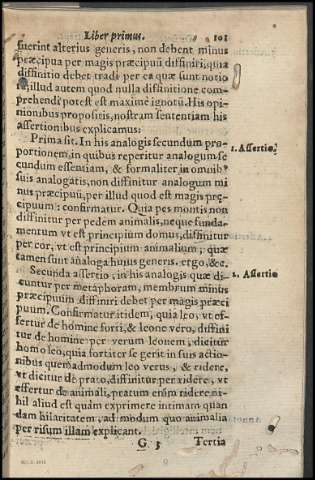 Liber primus. 101
fuerint alterius generis, non debent minus
præcipua per magis præcipuũ diffiniri, quia
diffinitio debet tradi per ea quæ sunt notio
illud autem quod nulla diffinitione com-
prehendi potest est maximè ignotũ. His opi-
nionibus propositis, nostram sententiam his
assertionibus explicamus:
Prima sit. In his analogis secundum pro-
portionem, in quibus reperitur analogum se
cundum essentiam, & formaliter in omnib9
suis analogatis, non diffinitur analogum mi
nus præcipuũ, per illud quod est magis præ-
cipuum: confirmatur. Quia pes montis non
diffinitur per pedem animalis, neque funda-
mentum vt est principium domus, diffinitur
per cor, vt est principium animalium, quæ
tamen sunt analoga huius generis. ergo, &c.
Secunda assertio, in his analogis quæ di-
cuntur per metaphoram, membrum minus
præcipuum diffiniri debet per magis præci
puum. Confirmatur itidem, quia leo, vt of-
fertur de homine forti, & leone vero, diffini
tur de homine per verum leonem, dicitur
homo leo, quia fortiter se gerit in suis actio-
nibus quemadmodum leo verus, & ridere,
vt dicitur de prato, diffinitur per ridere, vt
effertur de animali, pratum enim ridere ni-
hil aliud est quàm exprimere intimam quan
dam hilaritatem, ad modum quo animalia
per risum illam explicant.
G 3 Tertia
1. Assertio.
2. Assertio